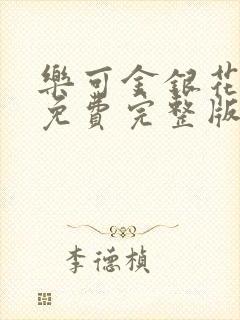 樂可金銀花
免費完整版
李德楨